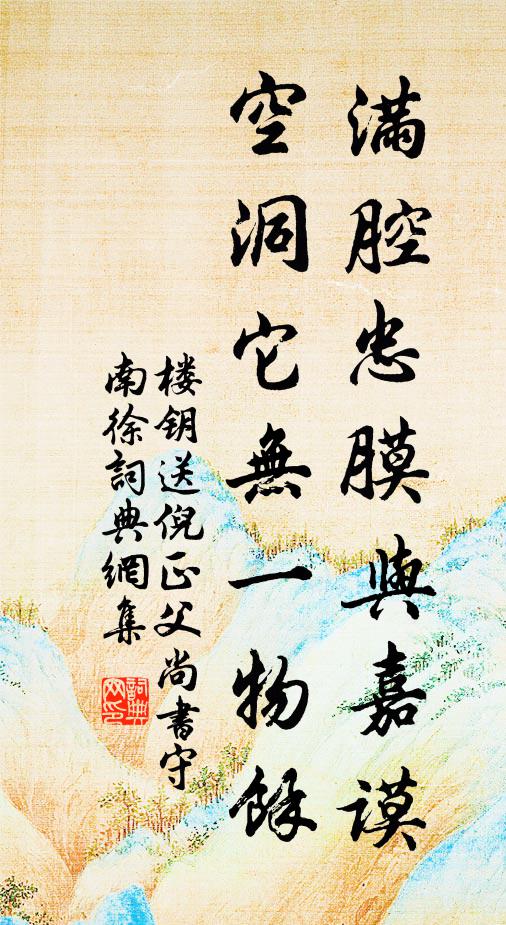 满腔忠膜與嘉谟
空洞它無一物餘
楼钥送倪正父尚書守
南徐詞典網集
詞典
网印